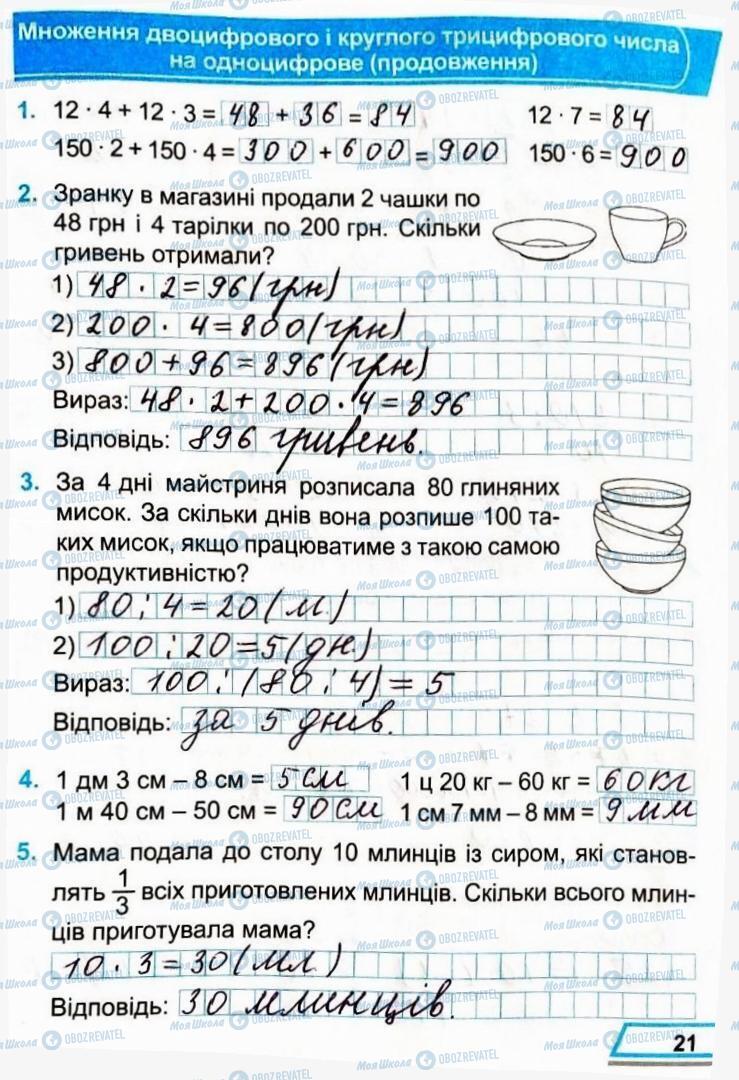 Множення двоцифрового і круглого трицифрового числа
на одноцифрове (продовження)
1. 12 · 4 + 12 · 3 = 48 + 36 = 84 12 · 7 = 84
150 · 2 + 150 · 4 = 300 + 600 = 900 150 · 6 = 900
2. Зранку в магазині продали 2 чашки по
48 грн і 4 тарілки по 200 грн. Скільки
гривень отримали?
1) 48 · 2 = 96 (грн)
2) 200 · 4 = 800 (грн)
3) 800 + 96 = 896 (грн)
Вираз: 48 · 2 + 200 · 4 = 896
Відповідь: 896 гривень.
3. За 4 дні майстриня розписала 80 глиняних
мисок. За скільки днів вона розпише 100 та-
ких мисок, якщо працюватиме з такою самою
продуктивністю?
1) 80 : 4 = 20 (м.)
2) 100 : 20 = 5 (дн.)
Вираз: 100 : (80 : 4) = 5
Відповідь: за 5 днів.
4. 1 дм 3 см – 8 см = 5 см 1 ц 20 кг – 60 кг = 60 кг
1 м 40 см – 50 см = 90 см 1 см 7 мм – 8 мм = 9 мм
5. Мама подала до столу 10 млинців із сиром, які станов-
лять 1/3 всіх приготовлених млинців. Скільки всього млин-
ців приготувала мама?
10 · 3 = 30 (мл.)
Відповідь: 30 млинців.
21